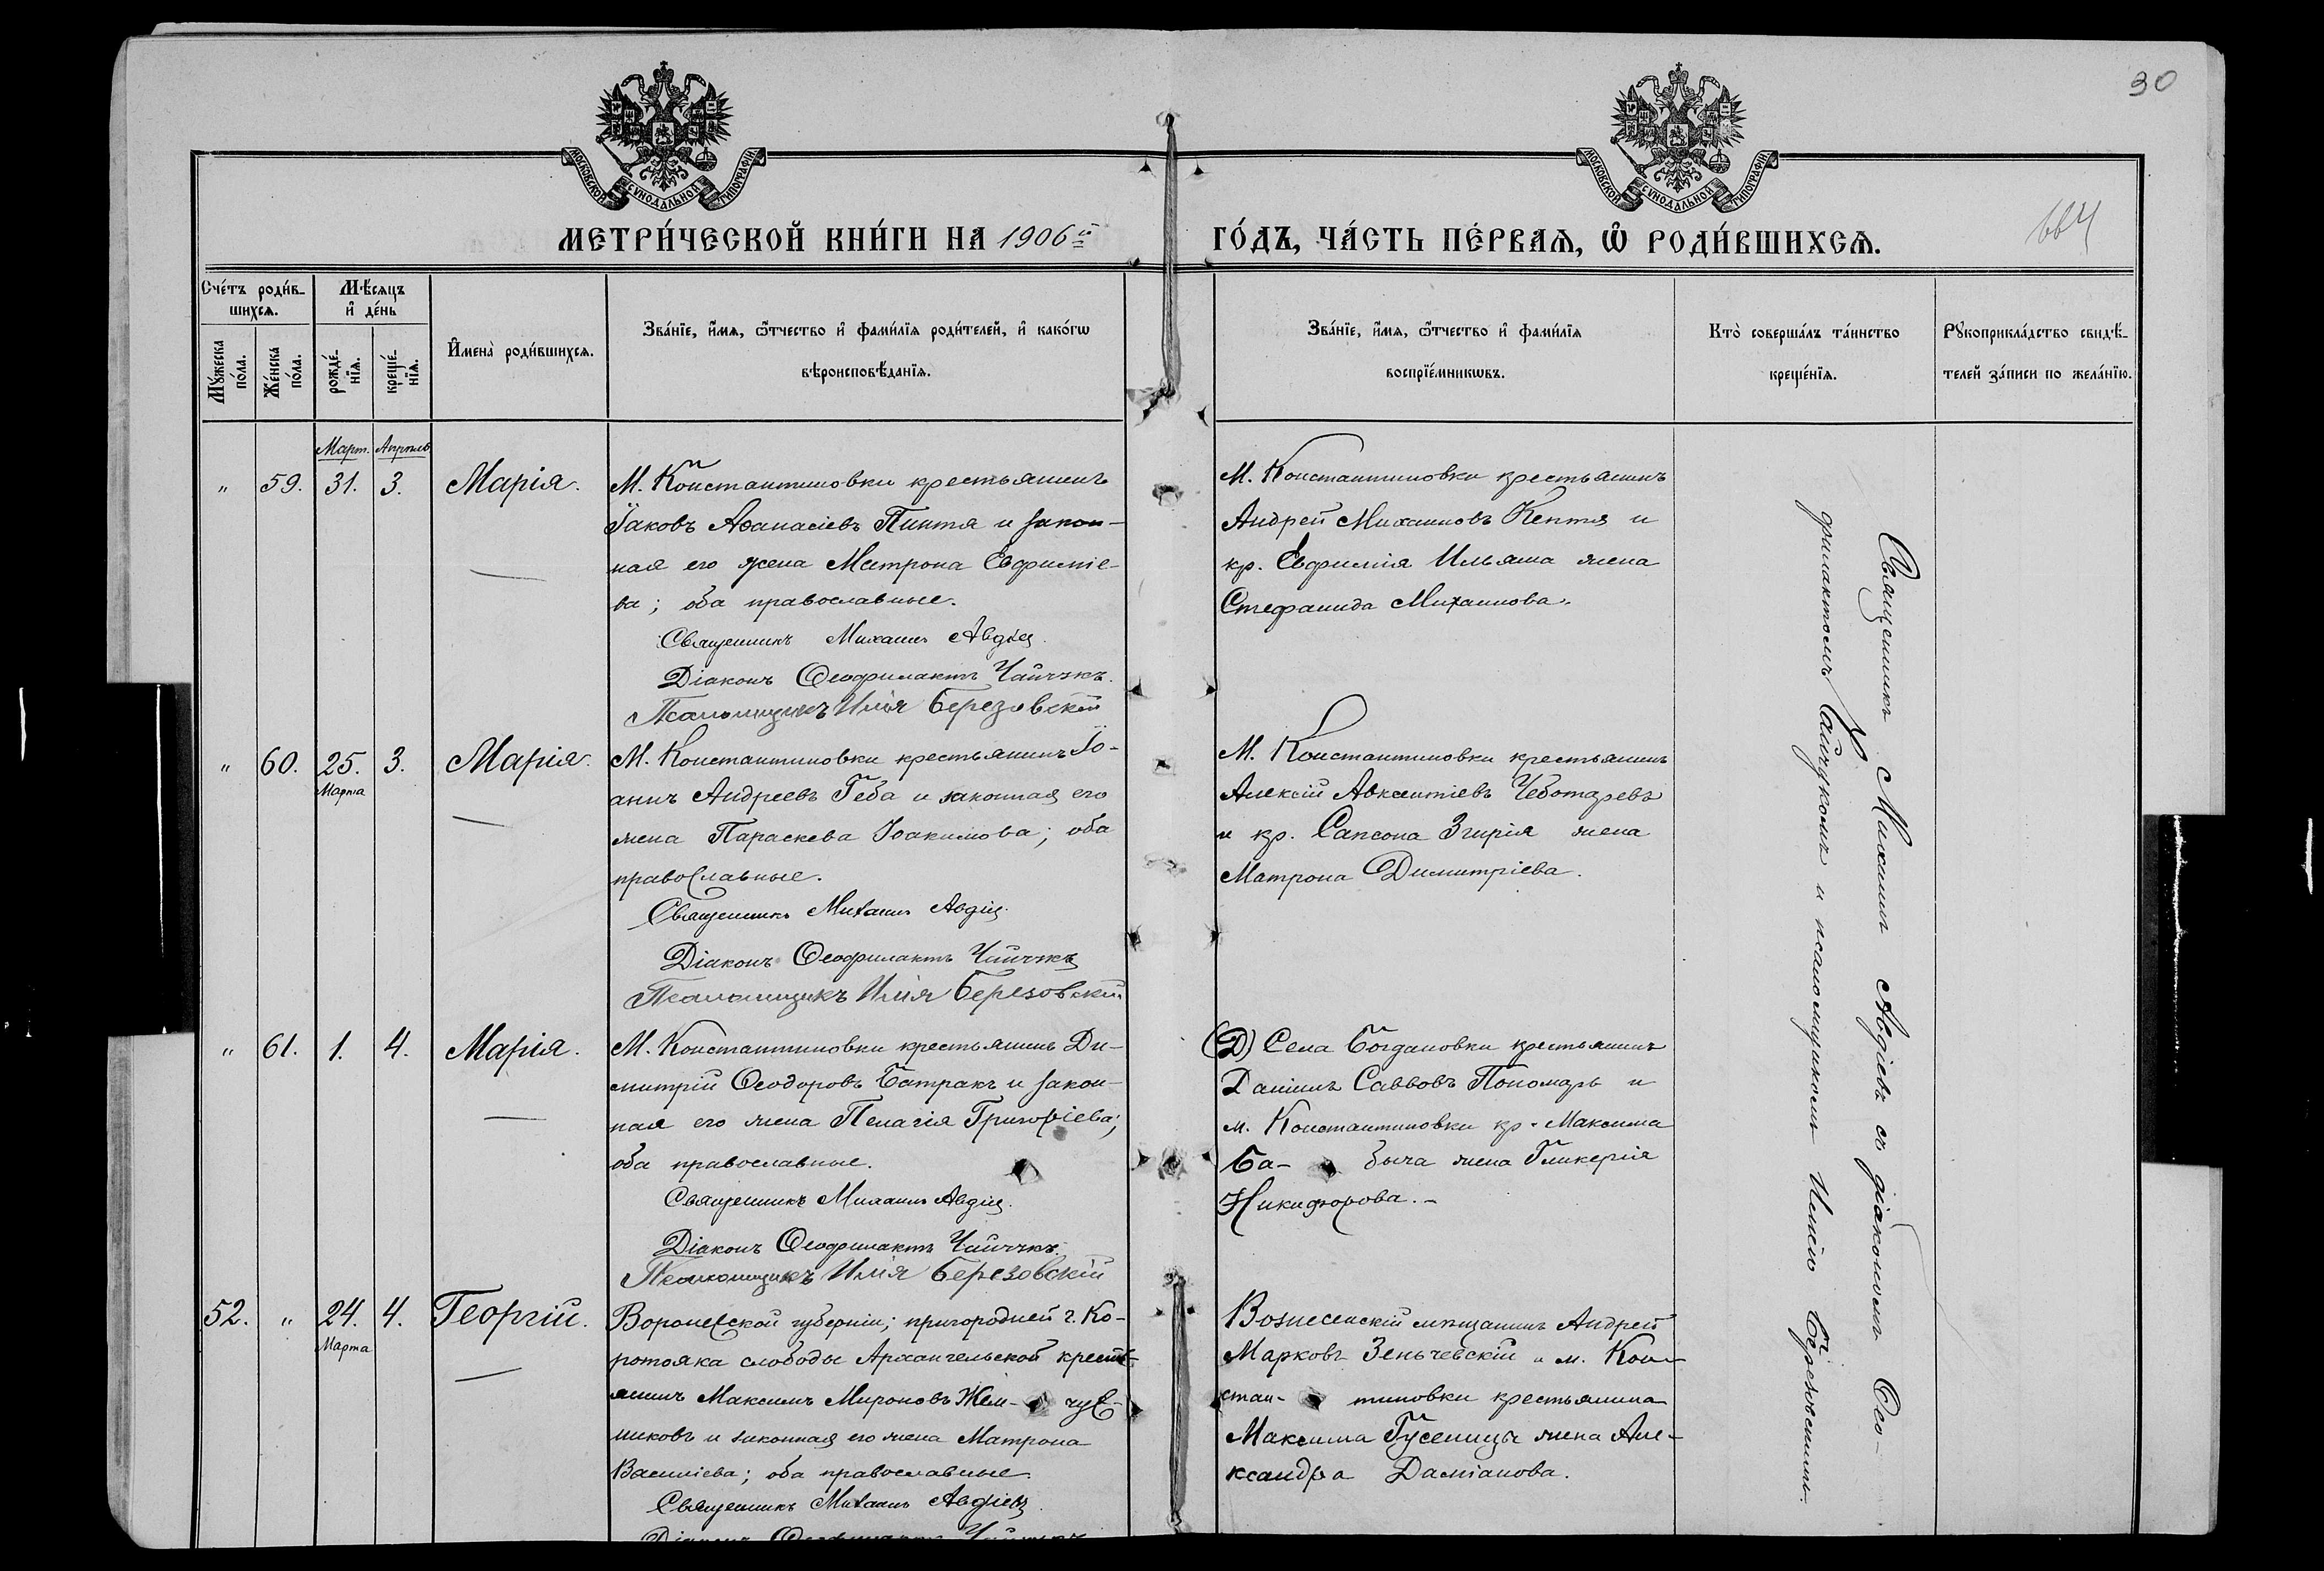 30
МОСКОВСКОЙ СѴНОДАЛЬНОЙ ТИПОГРАФІИ
МОСКОВСКОЙ СѴНОДАЛЬНОЙ ТИПОГРАФІИ
МЕТРИ́ЧЕСКОЙ КНИ́ГИ НА 1906й ГО́ДЪ, ЧА́СТЬ ПЕ́РВАѦ, Ѽ РОДИ́ВШИХСѦ.
Сче́тъ роди́в-
шихсѧ.
Мꙋ́жеска по́ла.
Же́нска по́ла.
Мѣ́сѧцъ
и҆ де́нь
рожде́-
нїѧ.
креще́-
нїѧ.
И҆мена̀ роди́вшихсѧ.
Зва́нїе, и҆́мѧ, ѻ҆́тчество и҆ фами́лїѧ роди́телей, и҆ како́гѡ
вѣроисповѣ́данїѧ.
Зва́нїе, и҆́мѧ, ѻ҆́тчество и҆ фами́лїѧ
воспрїе́мникѡвъ.
Кто̀ соверша́лъ та́инство
креще́нїѧ.
Рꙋкоприкла́дство свидѣ́-
телей за́писи по жела́нїю.
Март. Апрѣль
" 59. 31. 3. Марія.
М. Константиновки крестьянинъ
Іаковъ Аѳанасіевъ Пинтя и закон-
ная его жена Матрона Евфиміе-
ва; оба православные.
Священникъ Михаилъ Авдіев
Діаконъ Ѳеофилактъ Чайчукъ.
Псаломщикъ Илія Березовскій
М. Константиновки крестьянинъ
Андрей Михаиловъ Кентя и
кр. Евфимія Ильяша жена
Стефанида Михаилова.
" 60. 25. 3. Марія.
Марта
М. Константиновки крестьянинъ Іо-
аннъ Андреевъ Геба и законная его
жена Параскева Іоакимова; оба
православные.
Священникъ Михаилъ Авдіев
Діаконъ Ѳеофилактъ Чайчукъ
Псаломщикъ Илія Березовскій
М. Константиновки крестьянинъ
Алексій Авксентіевъ Чеботаревъ
и кр. Сапсона Згирія жена
Матрона Димитріева.
" 61. 1. 4. Марія.
М. Константиновки крестьянинъ Ди-
митрій Ѳеодоровъ Батракъ и закон-
ная его жена Пелагія Григоріева;
оба православные.
Священникъ Михаилъ Авдіев
Діаконъ Ѳеофилактъ Чайчукъ.
Псаломщикъ Илія Березовскій
(Д) Села Богдановки крестьянинъ
Даніилъ Саввовъ Пономарь и
м. Константиновки кр. Максима
Ба- быча жена Гликерія
Никифорова.-
52. " 24. 4. Георгій.
Марта
Воронежской губерніи, пригородней г. Ко-
ротояка слободы Архангельской кресть-
янинъ Максимъ Мироновъ Жем- чуж-
никовъ и законная его жена Матрона
Василіева; оба православные.
Священникъ Михаилъ Авдіевъ
Діаконъ Ѳеофилактъ Чайчукъ
Вознесенскій мѣщанинъ Андрей
Марковъ Зеньчевскій и м. Кон-
стан- тиновки крестьянина
Максима Гусеницы жена Але-
ксандра Даміанова.
Священникъ Михаилъ Авдіевъ съ діакономъ Ѳео-
филактомъ Чайчукомъ и псаломщикомъ Иліею Березовскимъ.